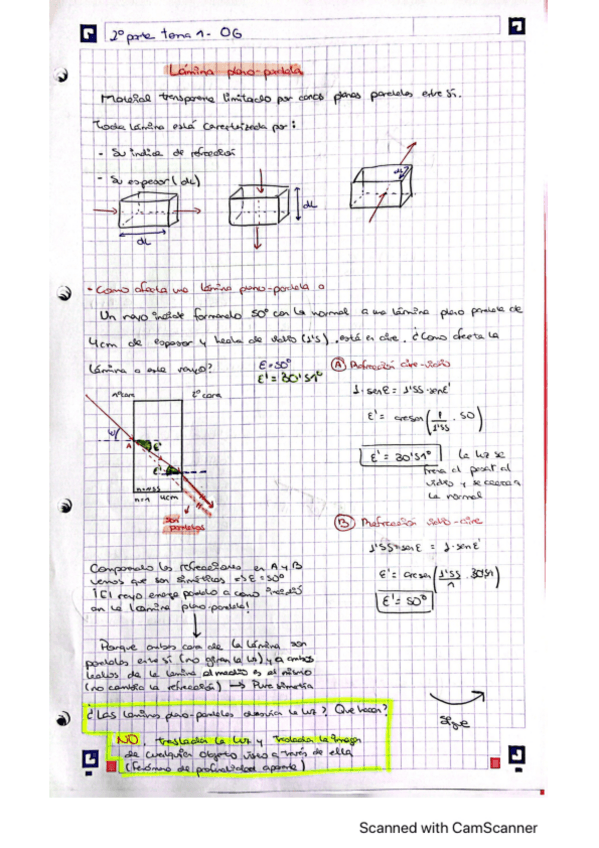 2º parte tema 1 - OG
Lámina plano-paralela
Material transparente limitado por caras planas paralelas entre sí.
Toda lámina está caracterizada por:
- Su índice de refracción
- Su espesor (dL)
dL
dL
dL
• Como afecta una lámina plano-paralela a
Un rayo incide formando 50º con la normal a una lámina plano paralela de
4cm de espesor y hecha de vidrio (1'5), está en aire. ¿Como afecta la
lámina a este rayo?
ε = 50º
ε' = 30'51º
1ª cara
2ª cara
A
ε'
n=1'55
n=1
4cm
son
paralelos
A Refracción aire-vidrio
1·sen ε = 1'55·sen ε'
ε' = arcsen (1/1'55 · 50)
ε' = 30'51º
La luz se
frena al pasar al
vidrio y se acerca a
la normal
B Refracción vidrio-aire
1'55·sen ε = 1·sen ε'
ε' = arcsen (1'55/1 · 30'51)
ε' = 50º
Comparando las refracciones en A y B
vemos que son simétricas => ε = 50º
¡El rayo emerge paralelo a como incidió
en la lámina plano-paralela!
Porque ambas caras de la lámina son
paralelas entre sí (no giran la luz) y a ambos
lados de la lámina el medio es el mismo
(no cambia la refracción) → Pura simetría
¿Las láminas plano-paralelas desvían la luz? ¿Qué hacen?
NO, trasladan la luz y traslada la imagen
de cualquier objeto visto a través de ella
(fenómeno de profundidad aparente)
Sigue
Scanned with CamScanner